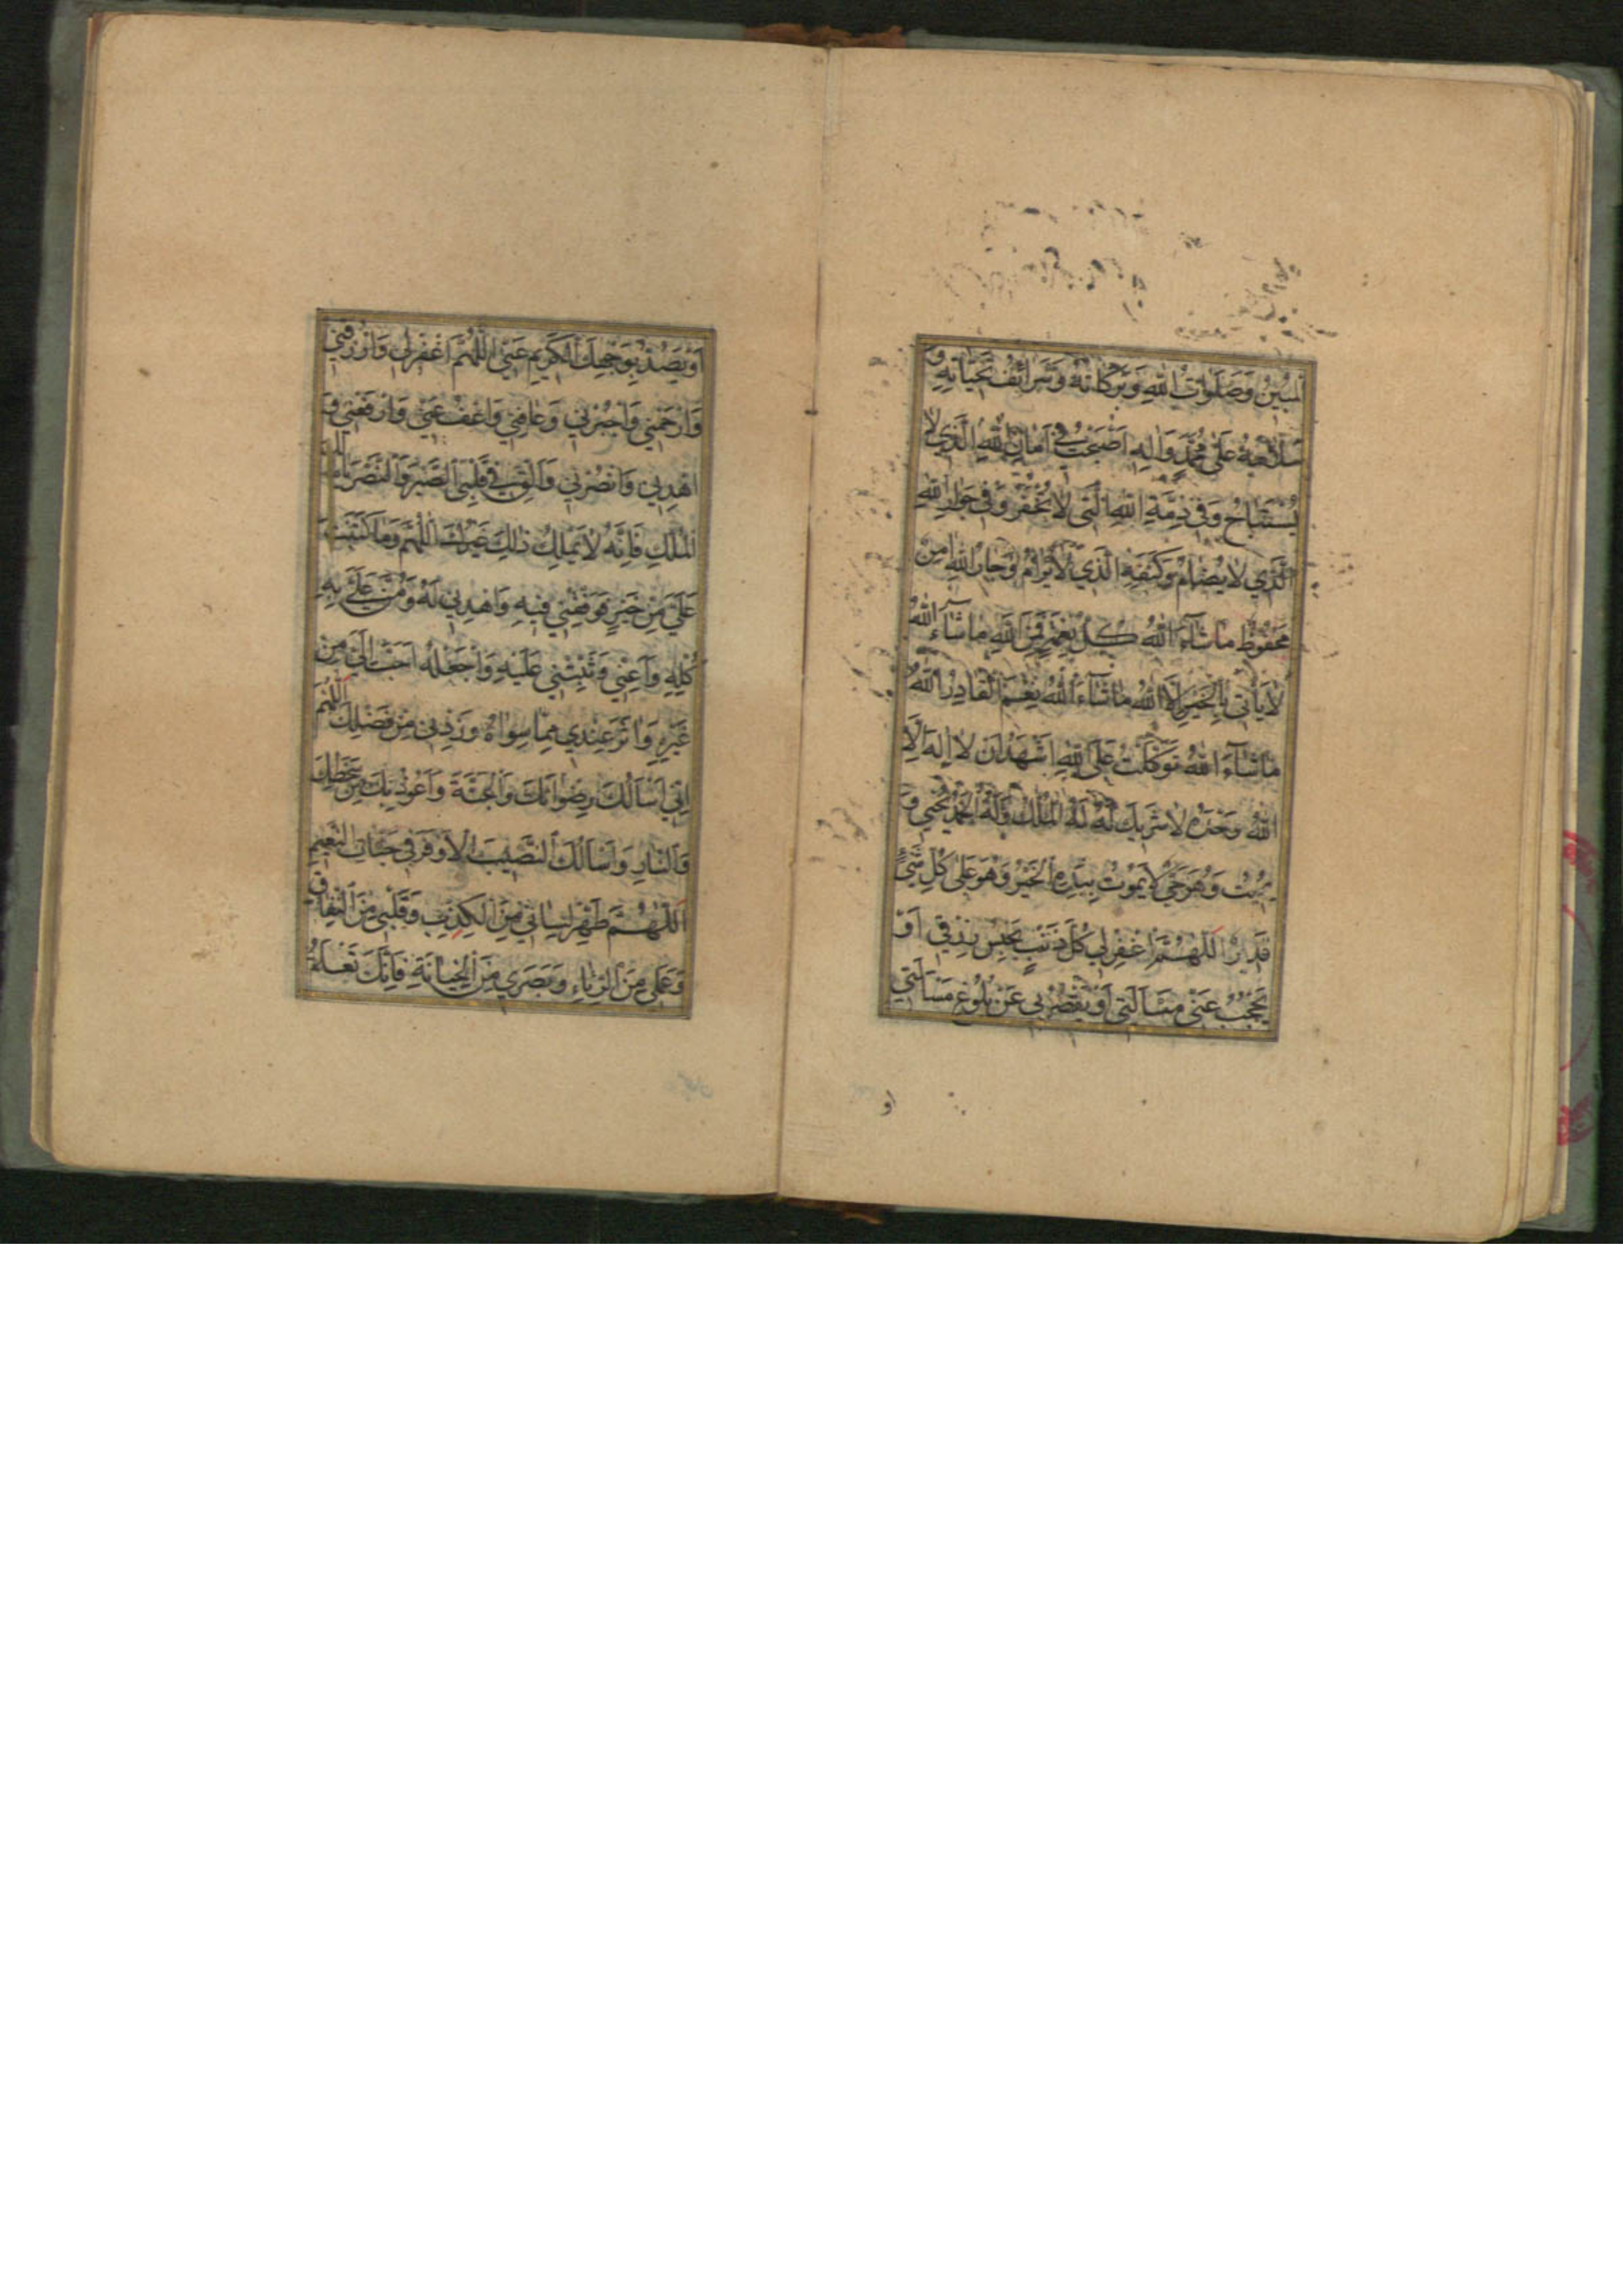 المبین وصلوات الله وبرکاته وشرائف تحیاته و
سلامه علی محمد واله اصبحت فی امان الله الذی لا
یستباح وفی ذمة الله التی لا تخفر وفی جوار الله
الذی لا یضام وکنفه الذی لا یرام وجار الله امن
محفوظ ما شآء الله کل نعمة فمن الله ما شآء الله
لا یاتی بالخیر الا الله ما شآء الله نعم القادر الله
ما شآء الله توکلت علی الله اشهد ان لا اله الا
الله وحده لا شریک له له الملک وله الحمد یحیی و
یمیت وهو حی لا یموت بیده الخیر وهو علی کل شیء
قدیر اللهم اغفر لی کل ذنب یحبس رزقی او
یحجب عنی مسالتی او یقصر بی عن بلوغ مسالتی
او
او یصد بوجهک الکریم عنی اللهم اغفر لی وارزقنی
وارحمنی واجبرنی وعافنی واعف عنی وارفعنی و
اهدنی وانصرنی والق فی قلبی الصبر والنصر یا مالک
الملک فانه لا یملک ذلک غیرک اللهم وما کتبت
علی من خیر فوفقنی فیه واهدنی له ومن علی به
کله واعنی وثبتنی علیه واجعله احب الی من
غیره واثر عندی مما سواه وزدنی من فضلک اللهم
انی اسالک رضوانک والجنة واعوذ بک من سخطک
والنار واسالک النصیب الاوفر فی جنات النعیم
اللهم طهر لسانی من الکذب وقلبی من النفاق
وعملی من الریاء وبصری من الخیانة فانک تعلم